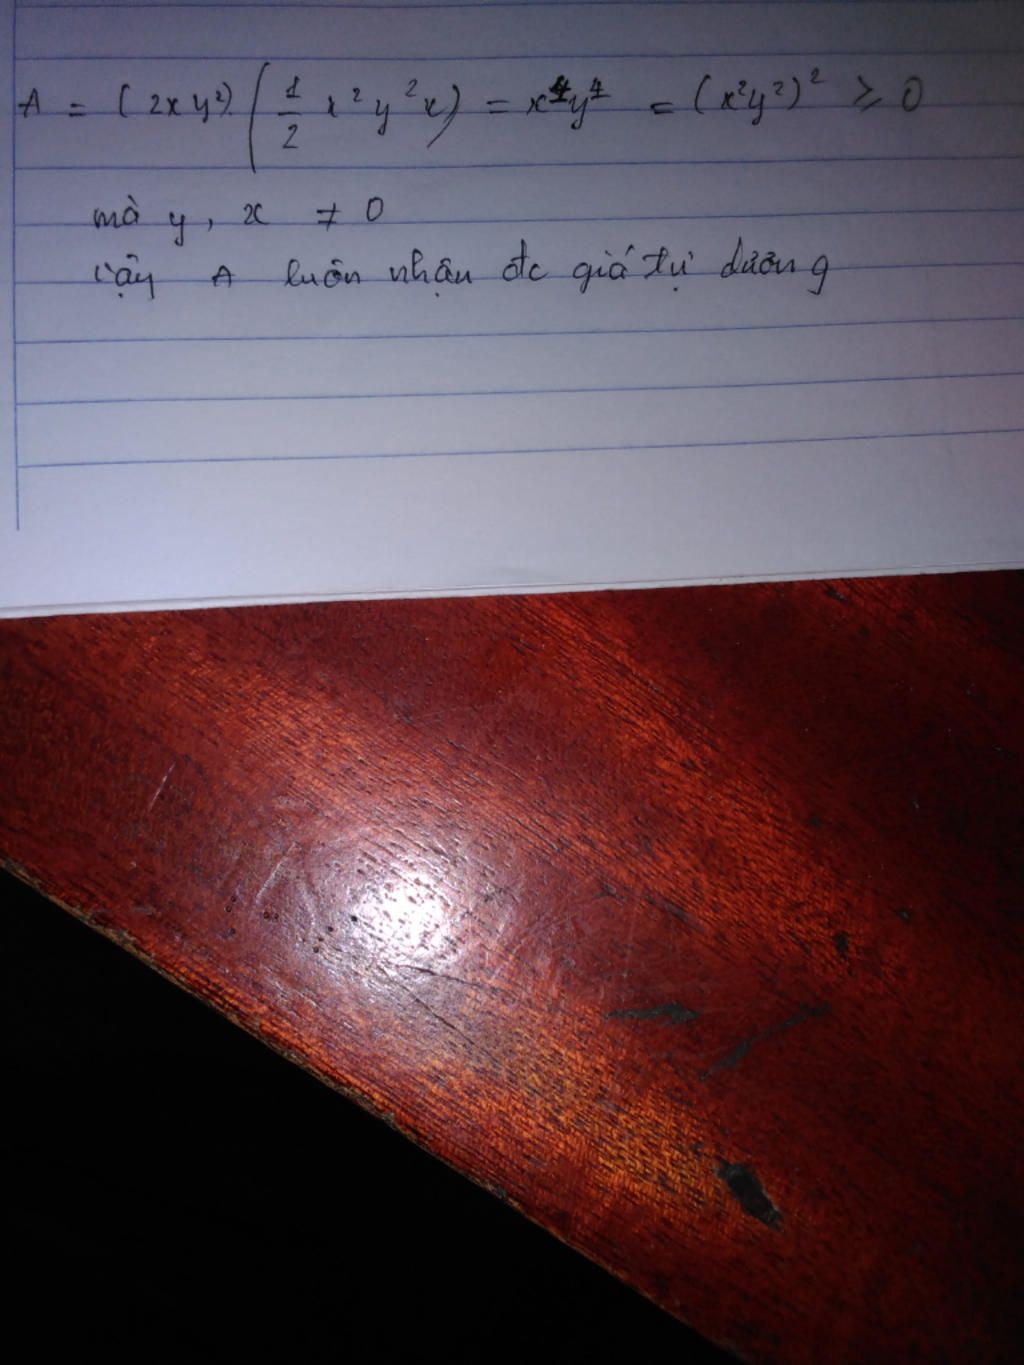 A = (2xy²).(1/2 x²y²x) = x⁴y⁴ = (x²y²)² ≥ 0
mà y, x ≠ 0
vậy A luôn nhận đc giá trị dương